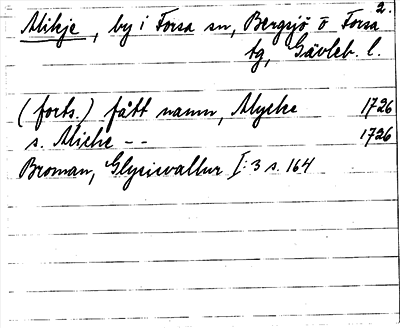 2.
Mikje, by i Forsa sn, Bergsjö o Forsa
tg, Gävleb. l.
(forts.) fått namn, Myche 1726
s. Miche -- 1726
Broman, Glysisvallur I:3 s. 164